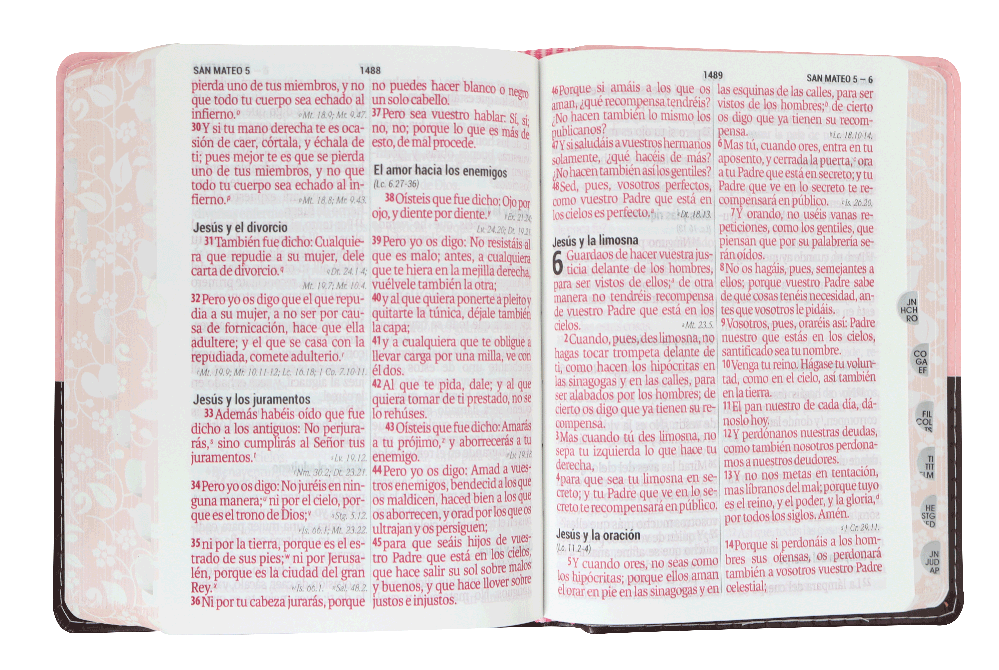 SAN MATEO 5
1488
pierda uno de tus miembros, y no
que todo tu cuerpo sea echado al
infierno.º ºMt. 18.9; Mr. 9.47.
30Y si tu mano derecha te es oca-
sión de caer, córtala, y échala de
ti; pues mejor te es que se pierda
uno de tus miembros, y no que
todo tu cuerpo sea echado al in-
fierno.ᵖ ᵖMt. 18.8; Mr. 9.43.
Jesús y el divorcio
31También fue dicho: Cualquie-
ra que repudie a su mujer, dele
carta de divorcio.q qDt. 24.1-4;
Mt. 19.7; Mr. 10.4.
32Pero yo os digo que el que repu-
dia a su mujer, a no ser por cau-
sa de fornicación, hace que ella
adultere; y el que se casa con la
repudiada, comete adulterio.ʳ
ʳMt. 19.9; Mr. 10.11-12; Lc. 16.18; 1 Co. 7.10-11.
Jesús y los juramentos
33Además habéis oído que fue
dicho a los antiguos: No perjura-
rás,ˢ sino cumplirás al Señor tus
juramentos.ᵗ ˢLv. 19.12.
ᵗNm. 30.2; Dt. 23.21.
34Pero yo os digo: No juréis en nin-
guna manera;ᵘ ni por el cielo, por-
que es el trono de Dios;ᵛ ᵘStg. 5.12.
ᵛIs. 66.1; Mt. 23.22.
35ni por la tierra, porque es el es-
trado de sus pies;ʷ ni por Jerusa-
lén, porque es la ciudad del gran
Rey.ˣ ʷIs. 66.1. ˣSal. 48.2.
36Ni por tu cabeza jurarás, porque
no puedes hacer blanco o negro
un solo cabello.
37Pero sea vuestro hablar: Sí, sí;
no, no; porque lo que es más de
esto, de mal procede.
El amor hacia los enemigos
(Lc. 6.27-36)
38Oísteis que fue dicho: Ojo por
ojo, y diente por diente.ʸ ʸEx. 21.24;
Lv. 24.20; Dt. 19.21.
39Pero yo os digo: No resistáis al
que es malo; antes, a cualquiera
que te hiera en la mejilla derecha,
vuélvele también la otra;
40y al que quiera ponerte a pleito y
quitarte la túnica, déjale también
la capa;
41y a cualquiera que te obligue a
llevar carga por una milla, ve con
él dos.
42Al que te pida, dale; y al que
quiera tomar de ti prestado, no se
lo rehúses.
43Oísteis que fue dicho: Amarás
a tu prójimo,ᶻ y aborrecerás a tu
enemigo. ᶻLv. 19.18.
44Pero yo os digo: Amad a vues-
tros enemigos, bendecid a los que
os maldicen, haced bien a los que
os aborrecen, y orad por los que os
ultrajan y os persiguen;
45para que seáis hijos de vues-
tro Padre que está en los cielos,
que hace salir su sol sobre malos
y buenos, y que hace llover sobre
justos e injustos.
1489
SAN MATEO 5 – 6
46Porque si amáis a los que os
aman, ¿qué recompensa tendréis?
¿No hacen también lo mismo los
publicanos?
47Y si saludáis a vuestros hermanos
solamente, ¿qué hacéis de más?
¿No hacen también así los gentiles?
48Sed, pues, vosotros perfectos,
como vuestro Padre que está en
los cielos es perfecto.ᵃ ᵃDt. 18.13.
Jesús y la limosna
6 Guardaos de hacer vuestra jus-
ticia delante de los hombres,
para ser vistos de ellos;ᵃ de otra
manera no tendréis recompensa
de vuestro Padre que está en los
cielos. ᵃMt. 23.5.
2Cuando, pues, des limosna, no
hagas tocar trompeta delante de
ti, como hacen los hipócritas en
las sinagogas y en las calles, para
ser alabados por los hombres; de
cierto os digo que ya tienen su re-
compensa.
3Mas cuando tú des limosna, no
sepa tu izquierda lo que hace tu
derecha,
4para que sea tu limosna en se-
creto; y tu Padre que ve en lo se-
creto te recompensará en público.
Jesús y la oración
(Lc. 11.2-4)
5Y cuando ores, no seas como
los hipócritas; porque ellos aman
el orar en pie en las sinagogas y en
las esquinas de las calles, para ser
vistos de los hombres;ᵇ de cierto
os digo que ya tienen su recom-
pensa. ᵇLc. 18.10-14.
6Mas tú, cuando ores, entra en tu
aposento, y cerrada la puerta,ᶜ ora
a tu Padre que está en secreto; y tu
Padre que ve en lo secreto te re-
compensará en público. ᶜIs. 26.20.
7Y orando, no uséis vanas re-
peticiones, como los gentiles, que
piensan que por su palabrería se-
rán oídos.
8No os hagáis, pues, semejantes a
ellos; porque vuestro Padre sabe
de qué cosas tenéis necesidad, an-
tes que vosotros le pidáis.
9Vosotros, pues, oraréis así: Padre
nuestro que estás en los cielos,
santificado sea tu nombre.
10Venga tu reino. Hágase tu volun-
tad, como en el cielo, así también
en la tierra.
11El pan nuestro de cada día, dá-
noslo hoy.
12Y perdónanos nuestras deudas,
como también nosotros perdona-
mos a nuestros deudores.
13Y no nos metas en tentación,
mas líbranos del mal; porque tuyo
es el reino, y el poder, y la gloria,ᵈ
por todos los siglos. Amén.
ᵈ1 Cr. 29.11.
14Porque si perdonáis a los hom-
bres sus ofensas, os perdonará
también a vosotros vuestro Padre
celestial;
JN
HCH
RO
CO
GA
EF
FIL
COL
TI
TIT
HE
STG
JN
JUD
AP